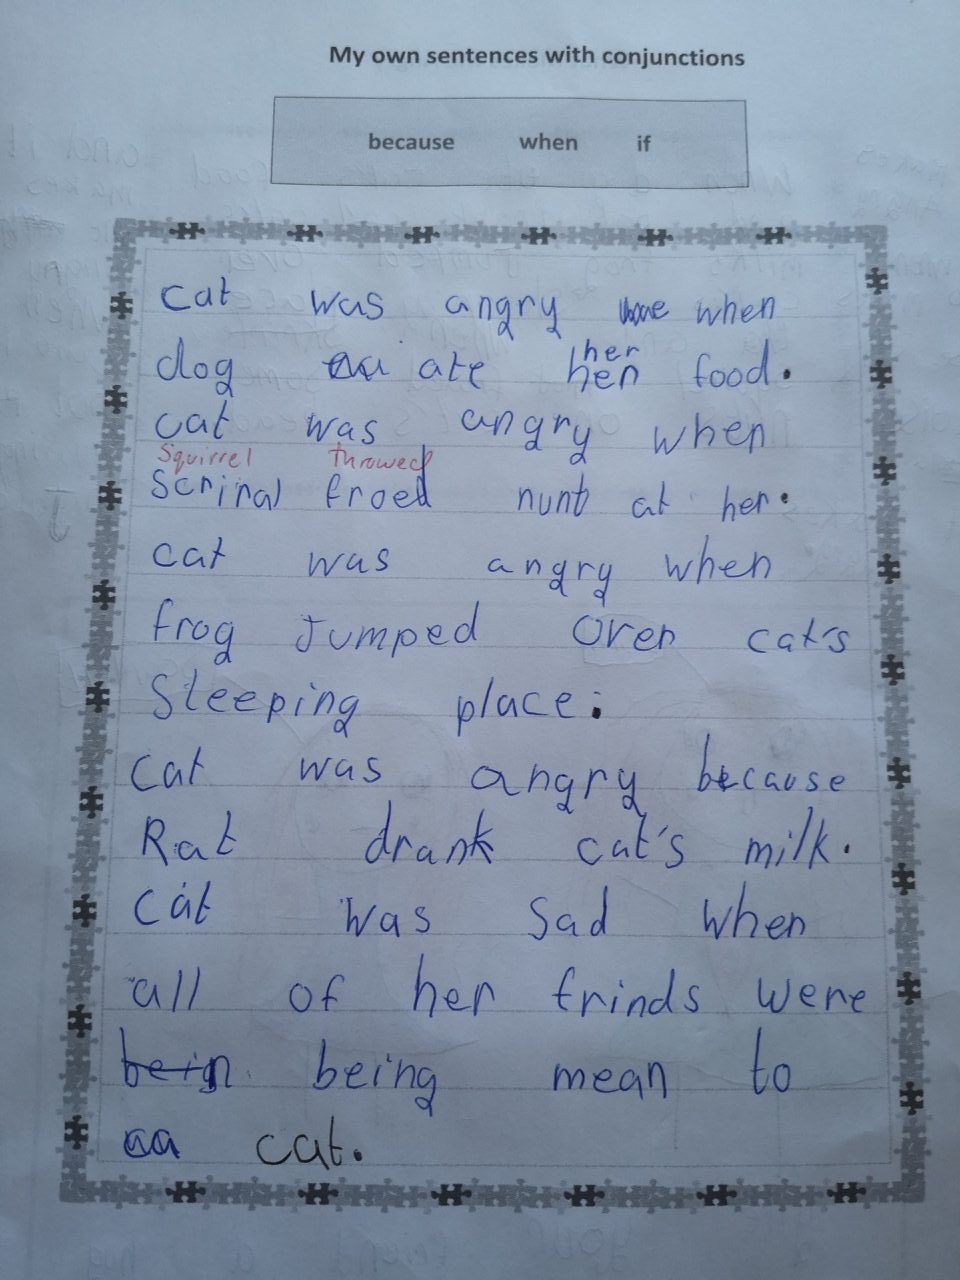 My own sentences with conjunctions
because when if
cat was angry when
dog ate her
her food.
cat was angry when
Squirrel throwed
Scriral froed nunt at her.
cat was angry when
frog Jumped over cat's
Sleeping place.
cat was angry because
Rat drank cat's milk.
cat was sad when
all of her frinds were
bein being mean to
cat.